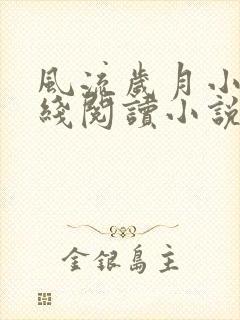 風流歲月小
綫閱讀小說
金銀島主